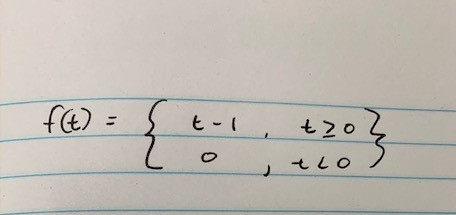 f(t) = { t-1 , t≥0
0 , t<0 }